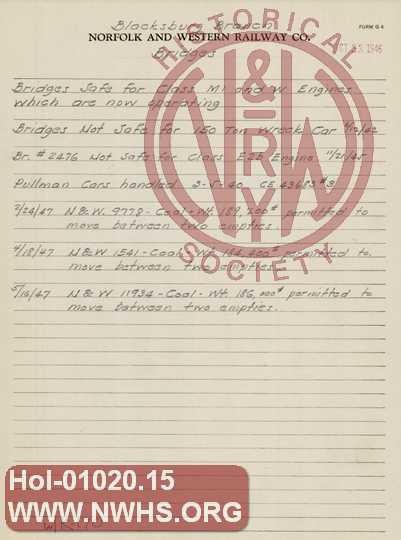 Blacksburg Branch
FORM G 4
NORFOLK AND WESTERN RAILWAY CO.
Bridges
1946
Bridges Safe for Class M1 and W Engines
which are now operating
Bridges Not Safe for 150 Ton Wreck Car
Br. # 2476 Not Safe for Class E2b Engine 11/21/45
Pullman Cars handled 3-5-40 CE 43683 #3
2/24/47 N&W. 9778 - Coal - Wt. 189,200# permitted to
move between two empties.
4/18/47 N&W 1541 - Coal - Wt. 184,400# permitted to
move between two empties.
5/16/47 N&W 11934 - Coal - Wt. 186,000# permitted to
move between two empties.
HISTORICAL
N&W
RY
SOCIETY
Hol-01020.15
WWW.NWHS.ORG